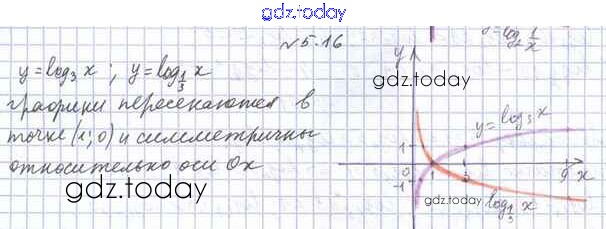 gdz.today
№5.16
y=log₃ x ; y=log₁/₃ x
графики пересекаются в
точке (1; 0) и симметричны
относительно оси Ox
gdz.today
y=log₂ 1/x
y
gdz.today
y=log₃ x
1
0 1 3 9 x
-1
gdz.today
log₁/₃ x